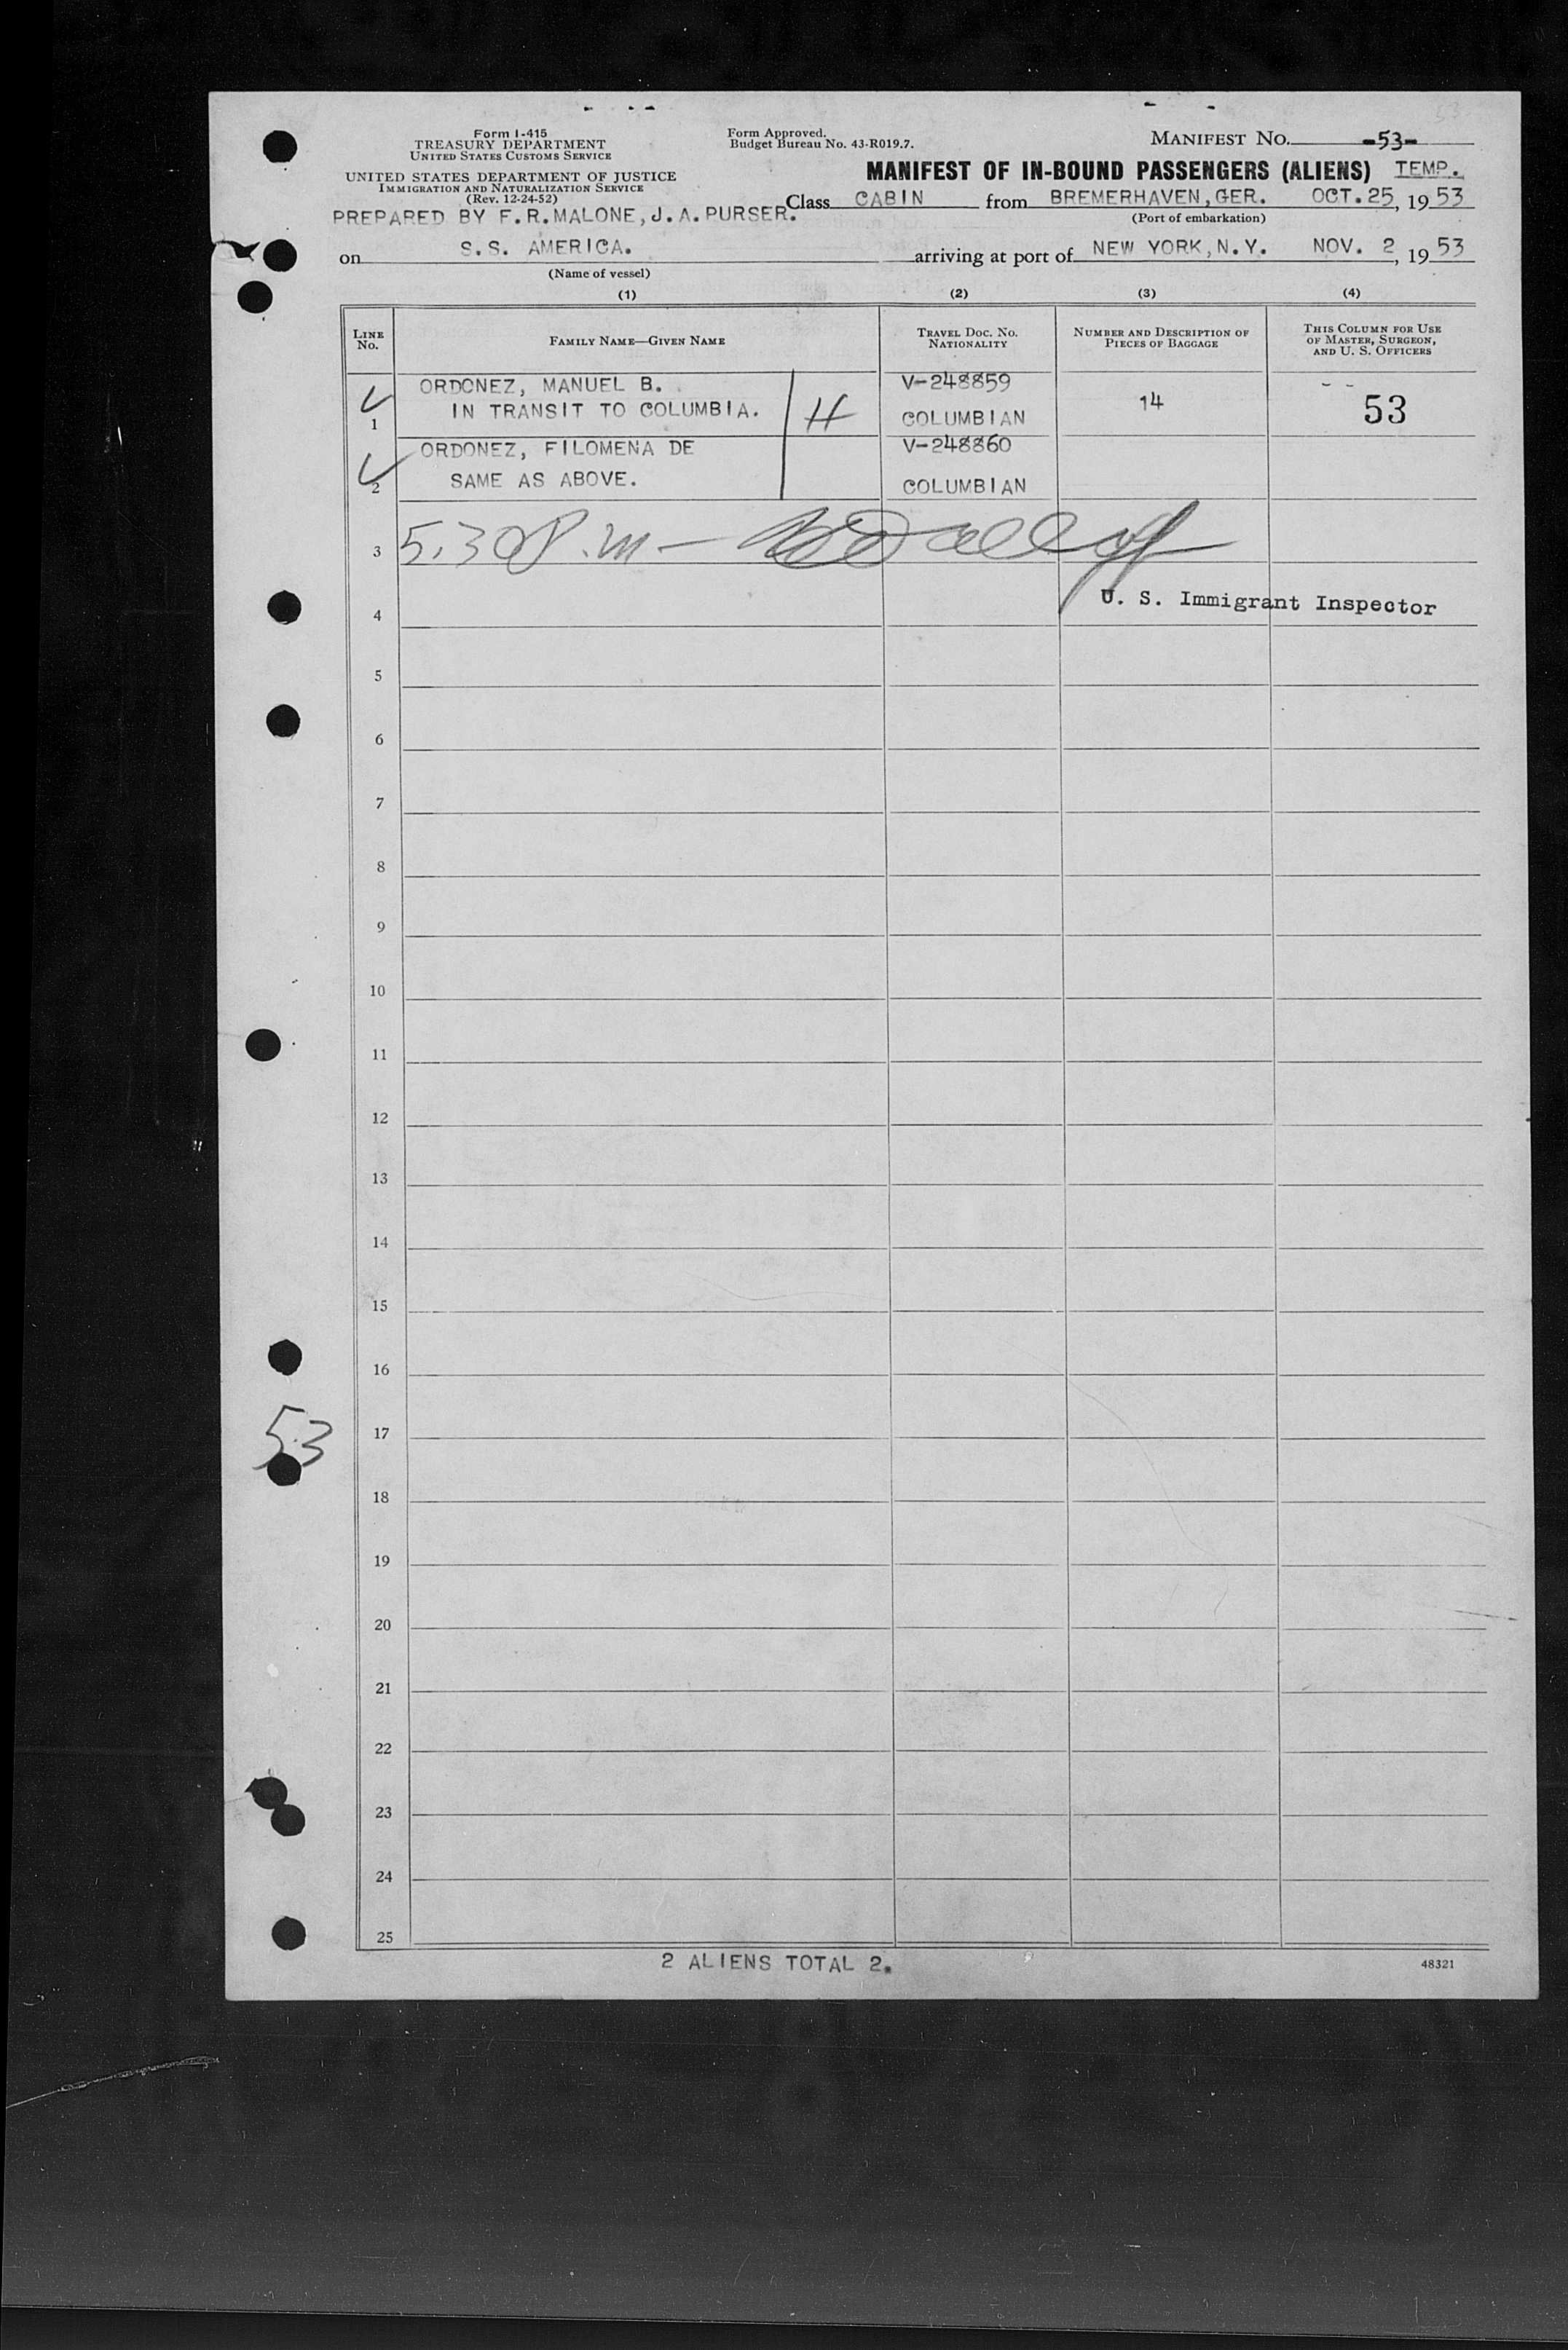 Form I-415
TREASURY DEPARTMENT
UNITED STATES CUSTOMS SERVICE
UNITED STATES DEPARTMENT OF JUSTICE
IMMIGRATION AND NATURALIZATION SERVICE
(Rev. 12-24-52)
PREPARED BY F.R.MALONE,J.A.PURSER.
Form Approved.
Budget Bureau No. 43-R019.7.
MANIFEST NO. -53-
MANIFEST OF IN-BOUND PASSENGERS (ALIENS) TEMP.
Class CABIN from BREMERHAVEN,GER. OCT.25, 1953
(Port of embarkation)
on S.S. AMERICA. arriving at port of NEW YORK,N.Y. NOV. 2, 1953
(Name of vessel)
(1) (2) (3) (4)
LINE NO.
FAMILY NAME—GIVEN NAME
TRAVEL DOC. NO. NATIONALITY
NUMBER AND DESCRIPTION OF PIECES OF BAGGAGE
THIS COLUMN FOR USE OF MASTER, SURGEON, AND U. S. OFFICERS
ORDONEZ, MANUEL B. V-248859
1 IN TRANSIT TO COLUMBIA. H COLUMBIAN 14 53
ORDONEZ, FILOMENA DE V-248860
2 SAME AS ABOVE. COLUMBIAN
3 5.30 P.m —
4 U. S. Immigrant Inspector
5
6
7
8
9
10
11
12
13
14
15
16
53
17
18
19
20
21
22
23
24
25
2 ALIENS TOTAL 2.
48321